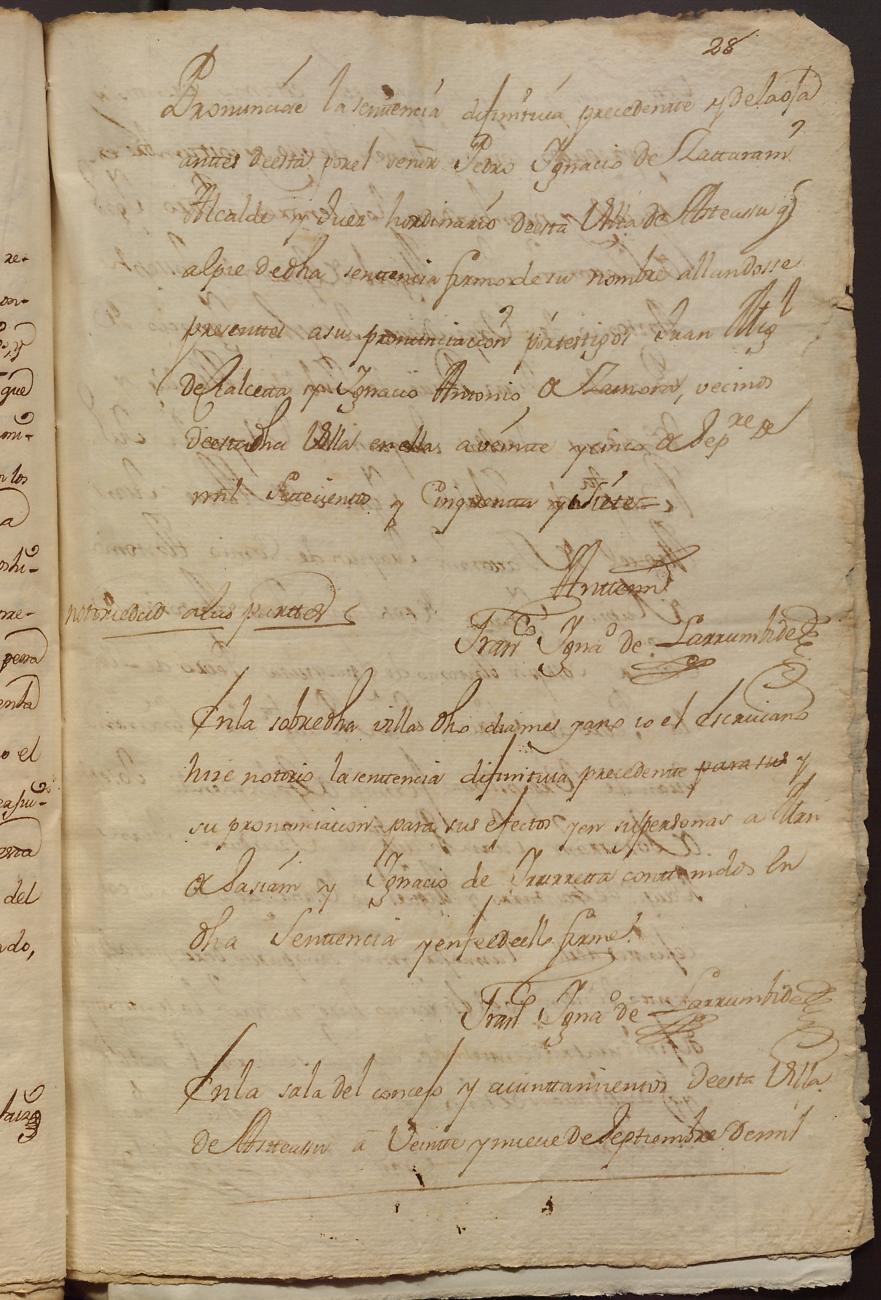 28
Pronunciose la sentencia difinitiva precedente y de la oja
antes deesta por el señor Pedro Ignacio de
Alcalde y Juez hordinario desta Villa de Asteasu q̃
alpie dedha sentencia firmo de su nombre allandosse
presenttes asu pronunciacion por testigos Juan Migl
de Ignacio Antonio de Zamora, vecinos
deestadha Villa en ella a veinte y cinco de Sepre de
mil Settecientos y Cinquenta y Siete
Anttemi
notoriedad alas parttes
Franco Ignao de Larrumbide
Enla sobredha villa dho dia mes y ano io el Escrivano
hize notorio la sentencia difinitiva precedente para sus y
su pronunciacion para sus efectos y en sus personas a Mrn
de Basiam y Ignacio de Yrurretta conttenidos En
dha Senttencia y enfeedeello firme
Franco Ignao de Larrumbide
Enla sala del concejo y aiunttamientos Deesta Villa
de Asteassu a Veintte y nueve de Septtiembre Demil
re-
que
del
o el